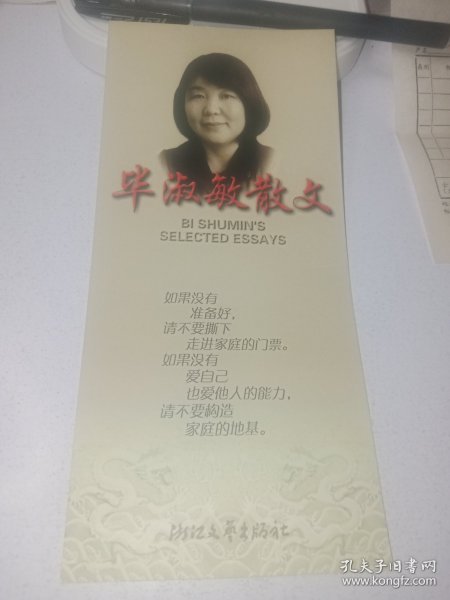 毕淑敏散文
BI SHUMIN'S
SELECTED ESSAYS
如果没有
准备好，
请不要撕下
走进家庭的门票。
如果没有
爱自己
也爱他人的能力，
请不要构造
家庭的地基。
浙江文艺出版社
孔夫子旧书网
www.kongfz.com